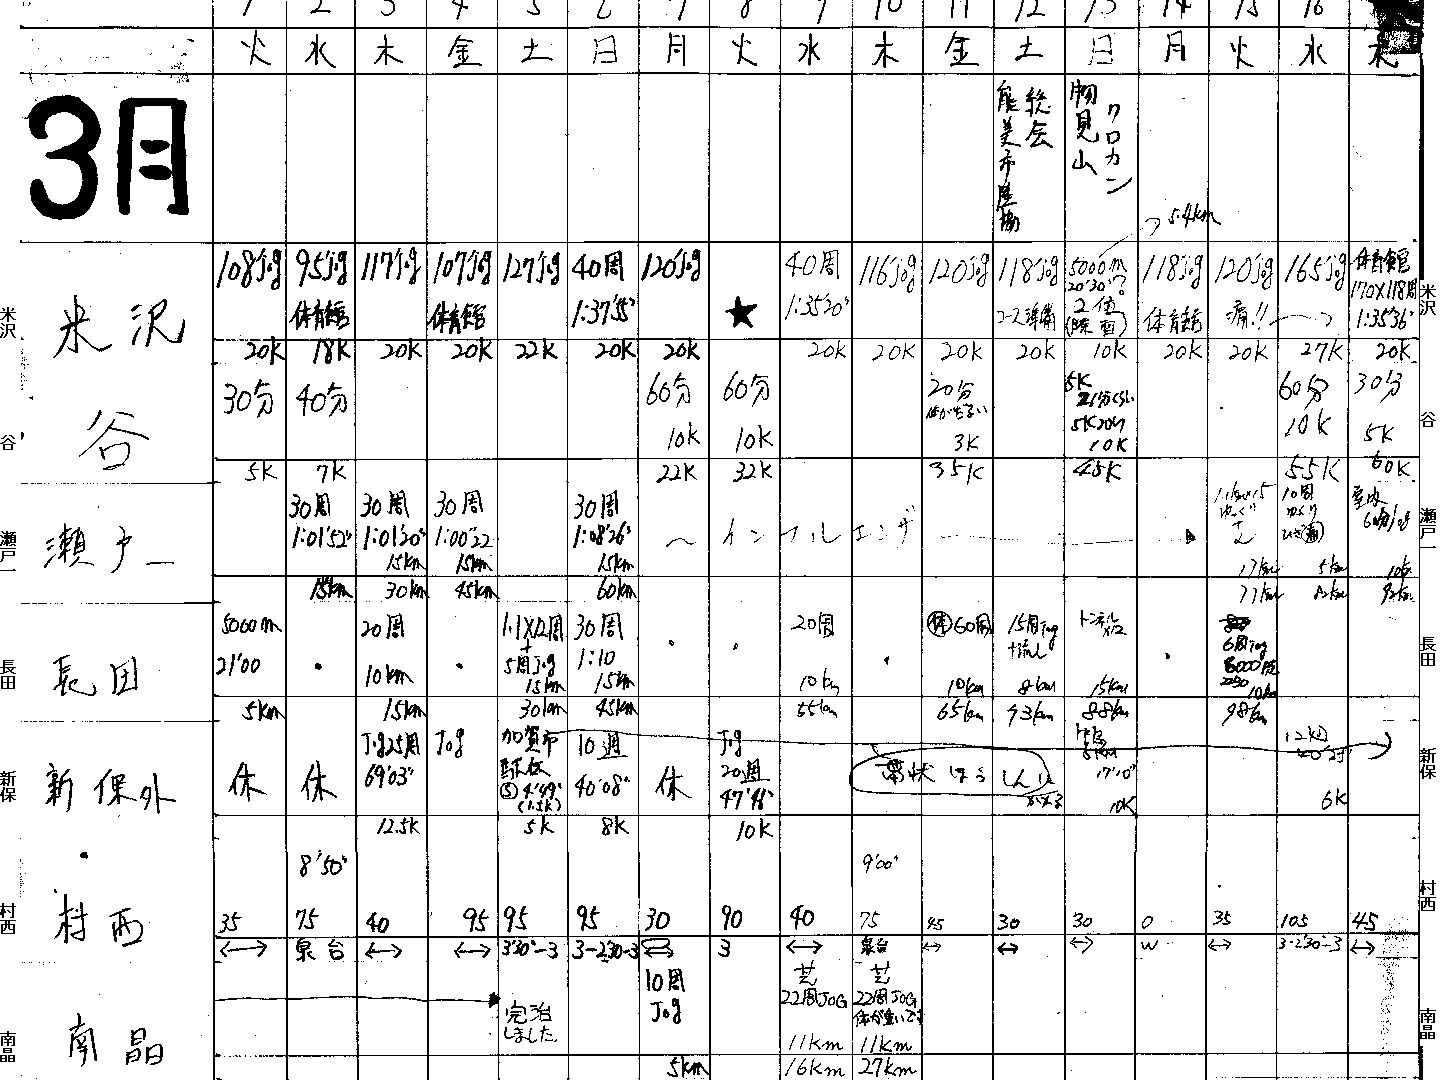 1 2 3 4 5 6 7 8 9 10 11 12 13 14 15 16
火 水 木 金 土 日 月 火 水 木 金 土 日 月 火 水 木
3月
総会
能美市
クロカン
物見山
5.4km
米沢
米沢
108Jog 95Jog 117Jog 107Jog 127Jog 40周 120Jog 40周 116Jog 120Jog 118Jog 5000m 118Jog 120Jog 165Jog 体育館
体育館 体育館 1:37'55" ★ 1:35'20" コース準備 20'30"? 2位 体育館 痛!! 170×118周 1:35'36"
米沢
20K 18K 20K 20K 22K 20K 20K 20K 20K 20K 20K 10K 20K 20K 27K 20K
谷
谷
30分 40分 60分 60分 20分 5K 60分 30分
10K 10K 3K 5K20分 10K 10K 5K
谷
5K 7K 22K 32K 35K 45K 55K 60K
瀬戸一
瀬戸一
30周 30周 30周 30周 10周 室内
1:01'52" 1:01'20" 1:00'22 1:08'26" 〜インフルエンザ ゆっくり
15km 15km 15km 17km 5km 10km
瀬戸一
15km 30km 45km 60km 77km 82km 92km
長田
長田
5000m 20周 1.1×12周 30周 20周 休 60周 15周Jog トンネル
21'00 + 5周Jog 1:10 +流し 6周Jog
10km 15km 15km 10km 10km 8km 15km 10km
長田
5km 15km 30km 45km 55km 65km 73km 88km 98km
新保
新保外
休 休 Jog25周 Jog 加賀市 10週 休 Jog 12周
69'03" 駅伝 40'08" 20週 帯状ほうしんに 17'10"
⑤4'49" (1.5K) 47'48" かかる 10K 6K
新保
12.5K 5K 8K 10K
・
村西
村西
8'50" 9'00"
35 75 40 95 95 95 30 90 40 75 45 30 30 0 35 105 45
村西
↔ 泉台 ↔ ↔ 3'30"-3 3-2'30-3 3 ↔ 泉台 ↔ ↔ ↔ W ↔ 3-2'30-3 ↔
南晶
南晶
完治しました。 10周 Jog 芝 22周JOG 芝 22周JOG
体が重いです
11km 11km
南晶
5km 16km 27km